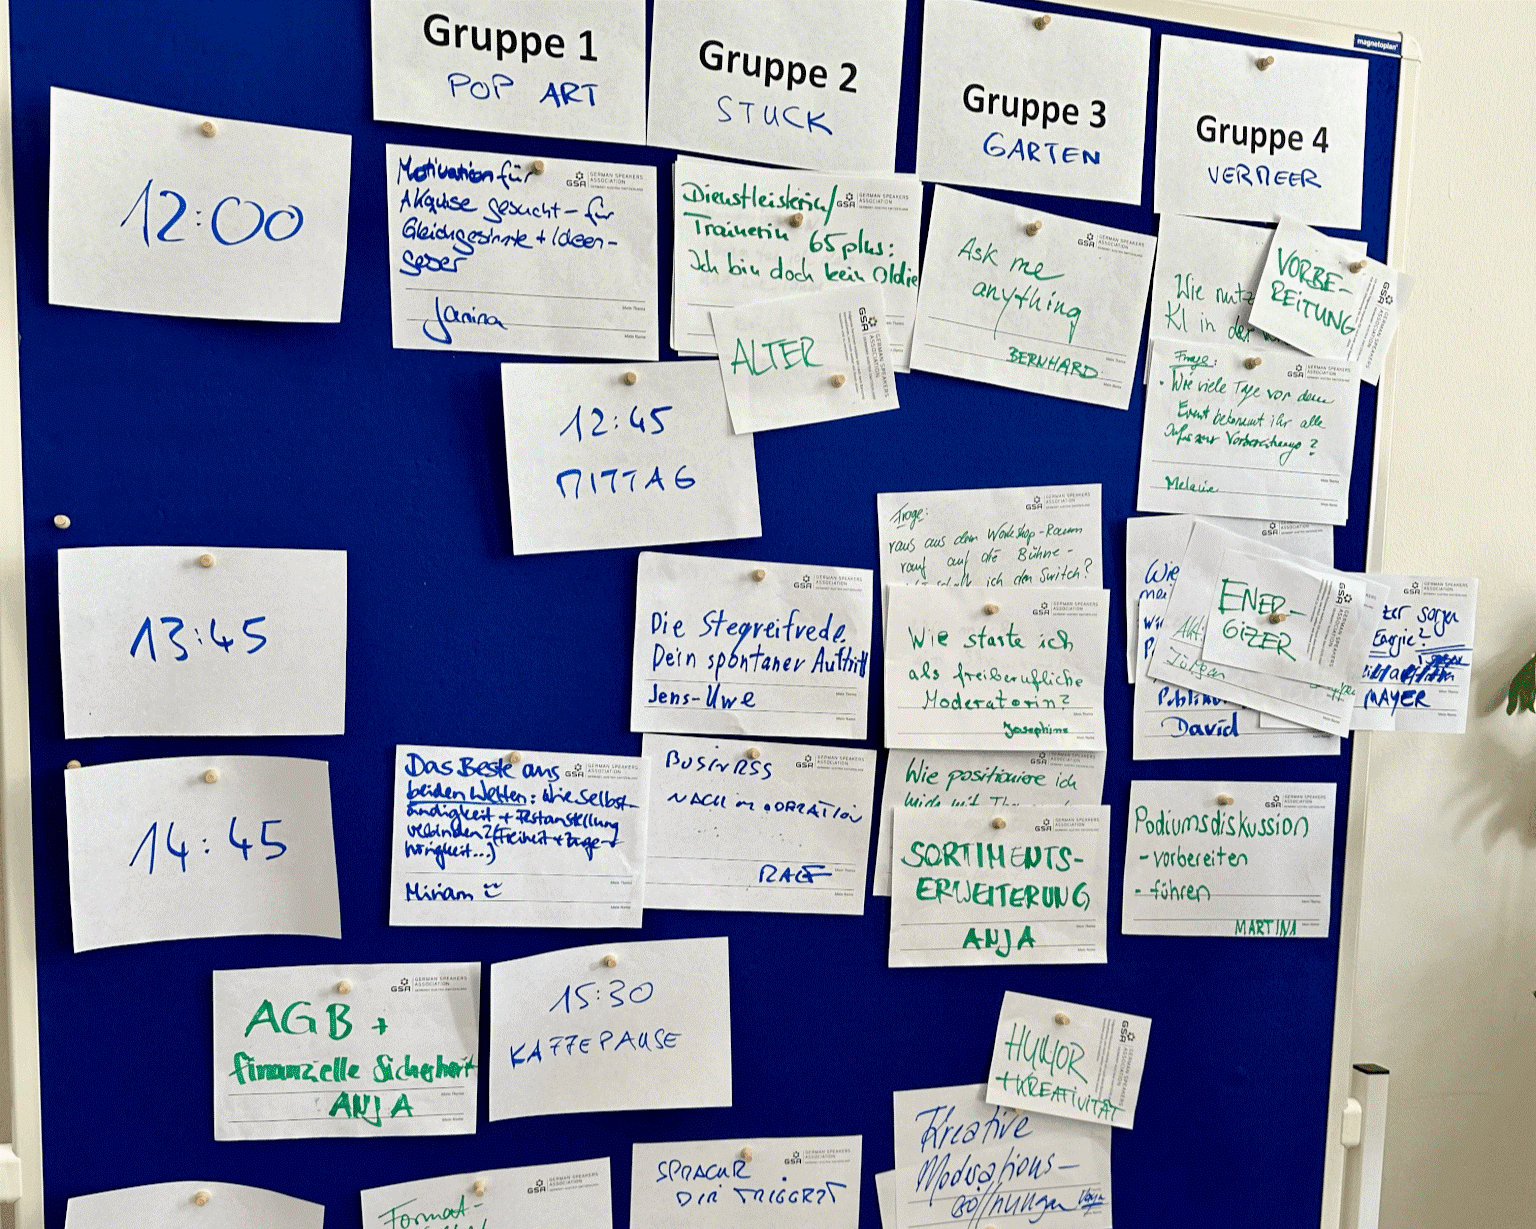 magnetoplan
Gruppe 1
POP ART
Gruppe 2
STUCK
Gruppe 3
GARTEN
Gruppe 4
VERMEER
12:00
Motivation für
Akquise gesucht - für
Gleichgesinnte + Ideen-
geber
Janina
GSA GERMAN SPEAKERS
ASSOCIATION
Dienstleisterin/
Trainerin 65 plus:
Ich bin doch kein Oldie
ALTER
Ask me
anything
BERNHARD
Wie nutz
KI in der
VORBE-
REITUNG
Frage:
• Wie viele Tage vor dem
Event bekommt ihr alle
Infos zur Vorbereitung?
Melanie
12:45
MITTAG
13:45
Die Stegreifrede.
Dein spontaner Auftritt
Jens-Uwe
Frage:
raus aus dem Workshop-Raum
rauf auf die Bühne -
ich den Switch?
Wie starte ich
als freiberufliche
Moderatorin?
Josephine
Wie
ENER-
GIZER
Jürgen
Publiku
David
zer sorgen
Energie?
MAYER
14:45
Das Beste aus
beiden Welten: Wie Selbst-
ändigkeit + Festanstellung
verbinden? (Freiheit + Zuge-
hörigkeit...)
Miriam
BUSINESS
NACH MODERATION
RALF
Wie positioniere ich
mich mit
SORTIMENTS-
ERWEITERUNG
ANJA
Podiumsdiskussion
- vorbereiten
- führen
MARTINA
AGB +
finanzielle Sicherheit
ANJA
15:30
KAFFEPAUSE
HUMOR
+ KREATIVITÄT
Kreative
Moderations-
öffnungen
SPRACHE
DIE TRIGGERT
Format-